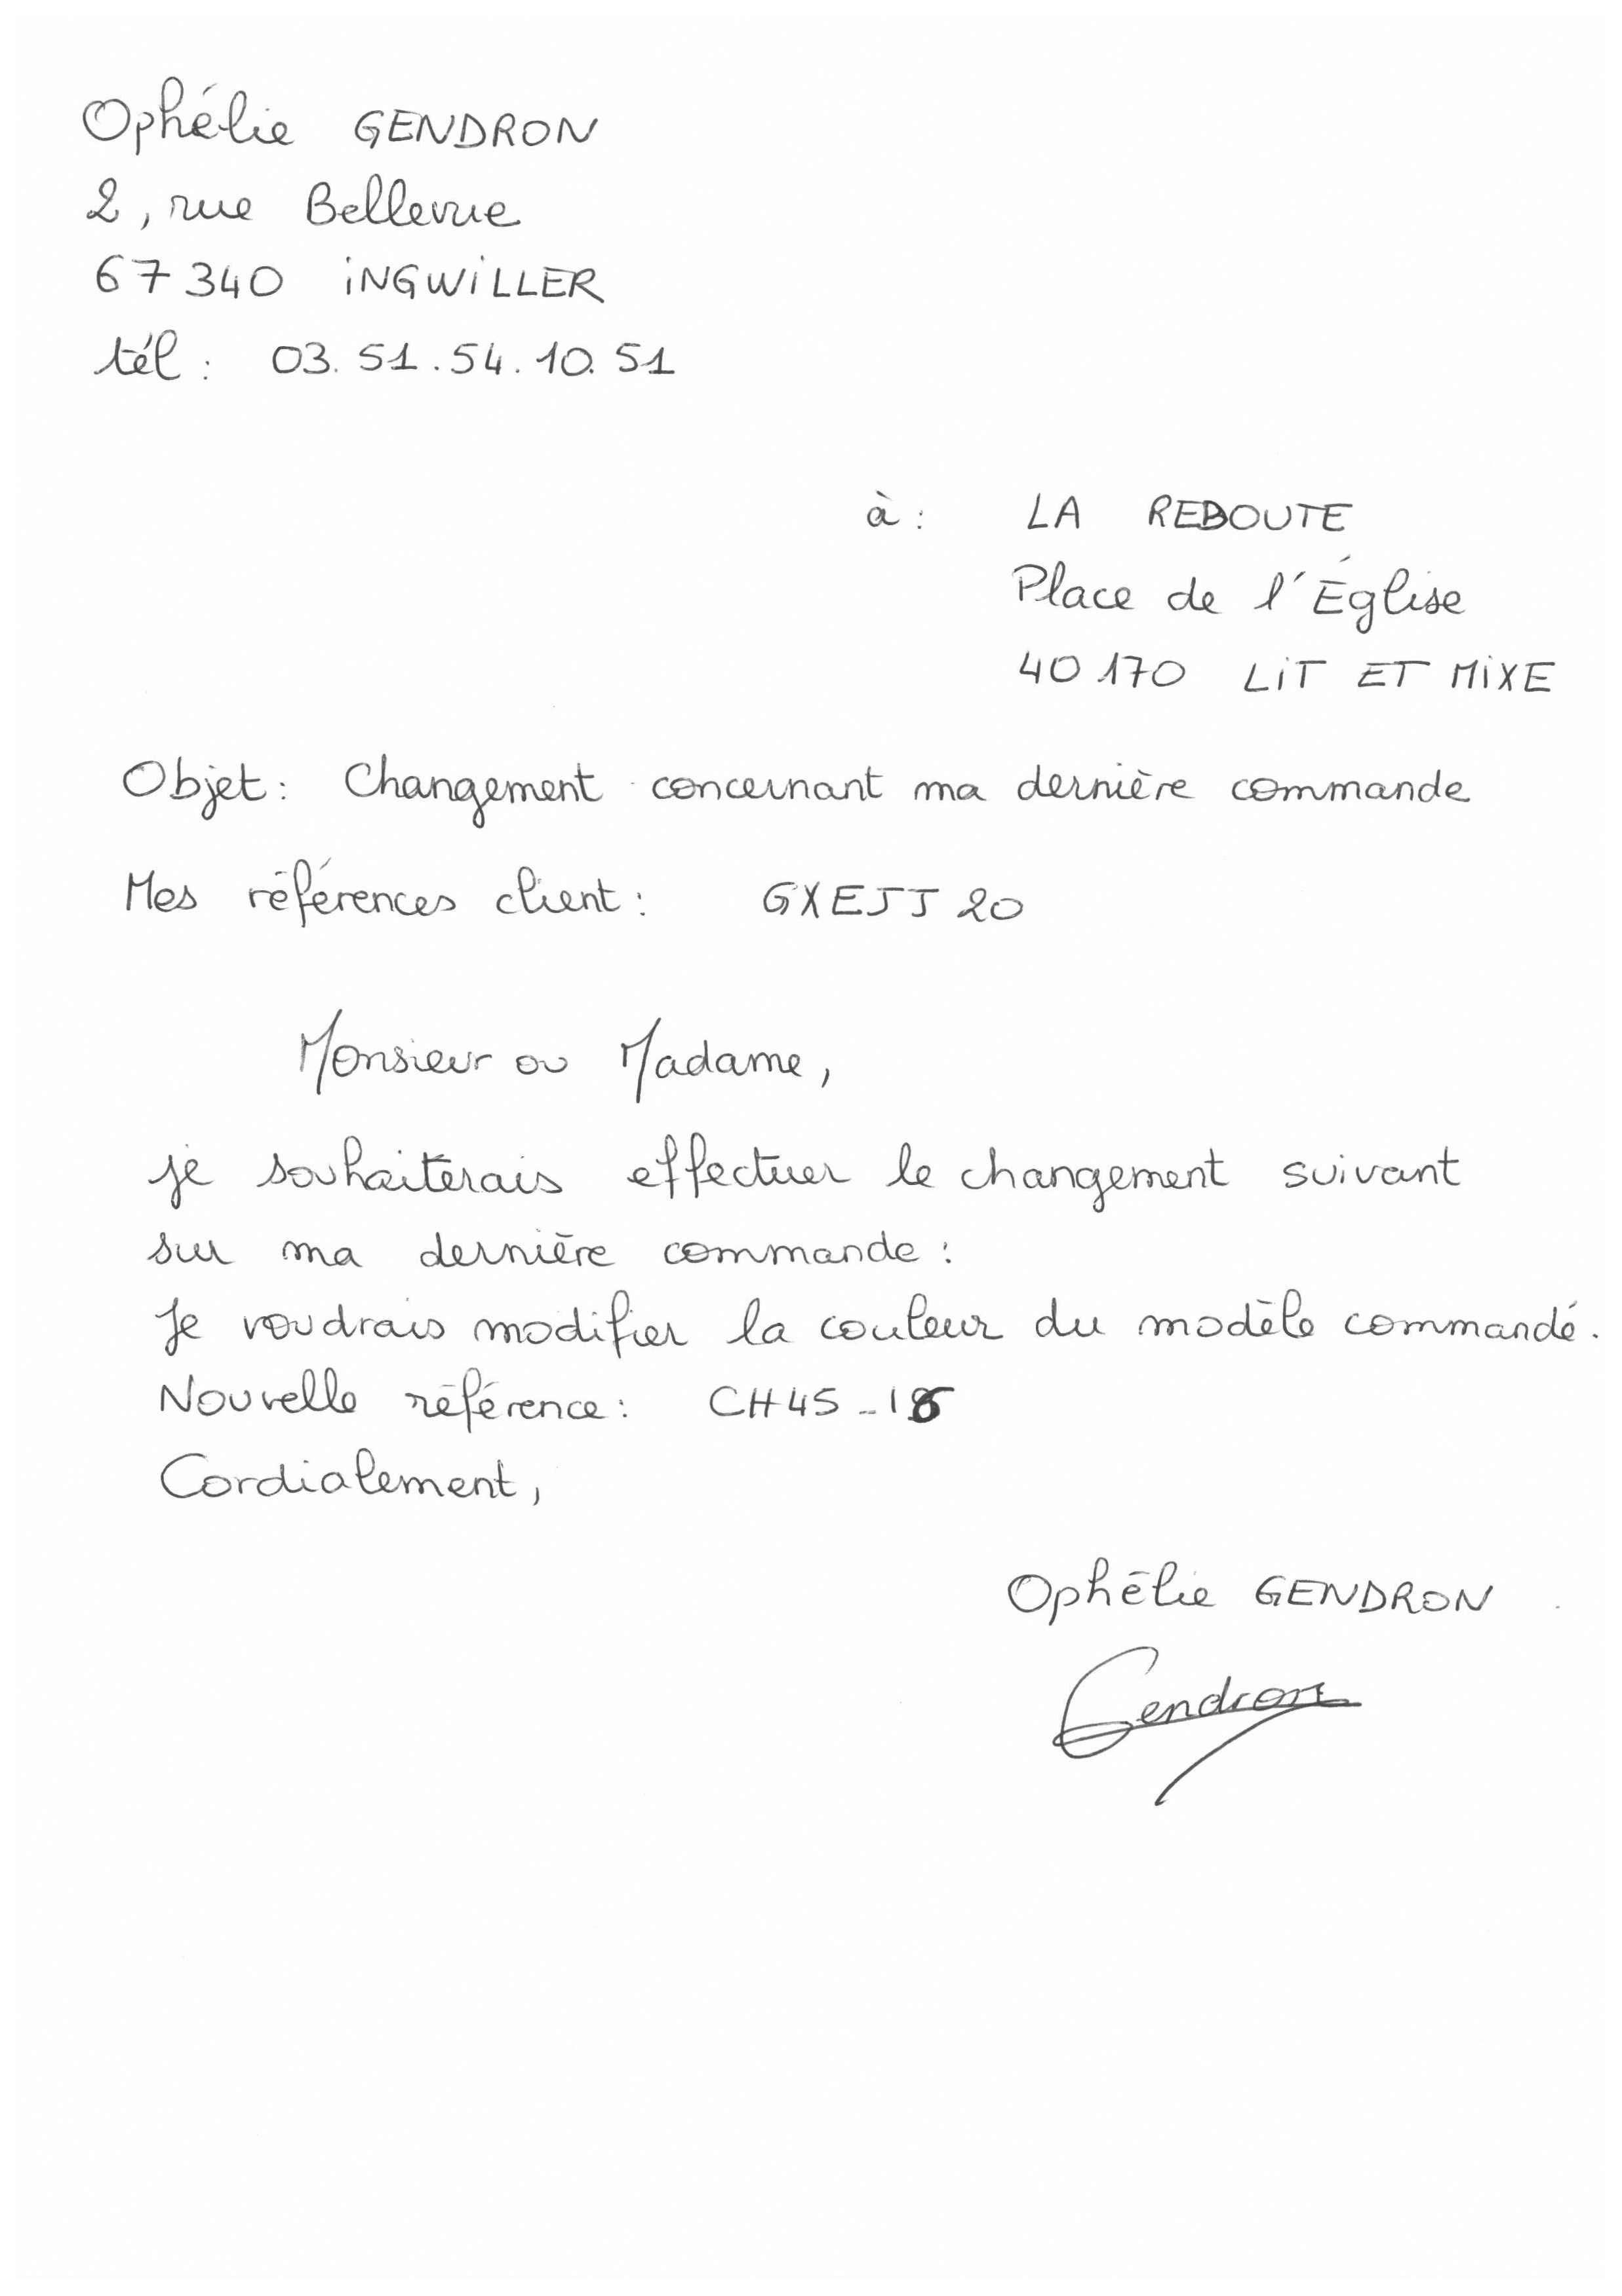 Ophélie GENDRON
2, rue Bellevue
67340 INGWILLER
tél : 03.51.54.10.51
à : LA REBOUTE
Place de l'Église
40170 LIT ET MIXE
Objet : Changement concernant ma dernière commande
Mes références client : GXEJJ20
Monsieur ou Madame,
je souhaiterais effectuer le changement suivant
sur ma dernière commande :
Je voudrais modifier la couleur du modèle commandé.
Nouvelle référence :
Cordialement,
Ophélie GENDRON
Gendron